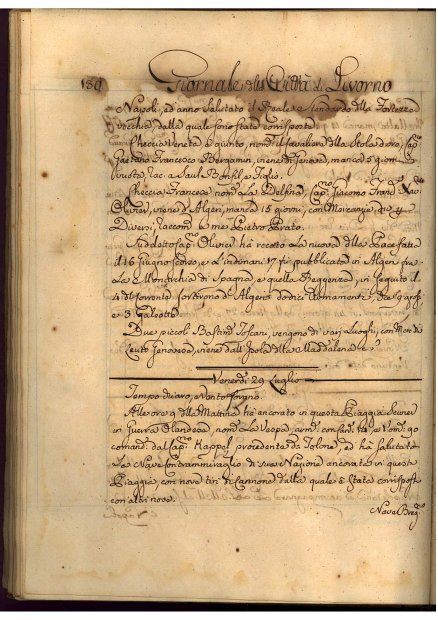 180 Giornale della Città di Livorno
Napoli, ed anno Salutato il Reale Stendardo della Fortezza
vecchia, dalla quale sono stati corrisposti
Pheccia Veneta d. quinto, nom.ta il Cavaliere della Stola d'oro, Cap.
Gaetano Francesco Bergamin, viene di Genova, manca 5 giorni
vuoto, rac. a Saul Bonfil e Figlio.
Pheccia Francese nom. La Delfina, Cap.no Giacomo
Olivier, viene d'Algeri, manca 15 giorni, con Mercanzie, div. p
Diversi, raccom. a me Pietro Prato.
Suddetto Cap.no Olivier hà recato la nuova della Pace fatta
il 16 Giugno scorso, e L'indimani 17 fu pubblicata in Algeri fra
La Monarchia di Spagna, e quella Reggenza, in seguito il
di Sortirono d'Algeri dodici
e 3 Galeotte
Due piccoli Bastim.ti Toscani, vengono di varj Luoghi, con Merci
Leuto Genovese, viene dall'Isola della Maddalena
Venerdì 29 Luglio
Tempo chiaro, e Vento
Alle ore 9 della Mattina hà ancorato in questa Spiaggia
in Guerra Olandese, nom. La Vespa, arm. con
comand. dal Cap.no Rappel, procedente da Tolone, ed hà Salutata
La Nave Contrammiraglio di sua Nazione ancorata in questa
Spiaggia, con nove tiri di Cannone, dalla quale è Stata corrisposta
con altri nove.
Nave